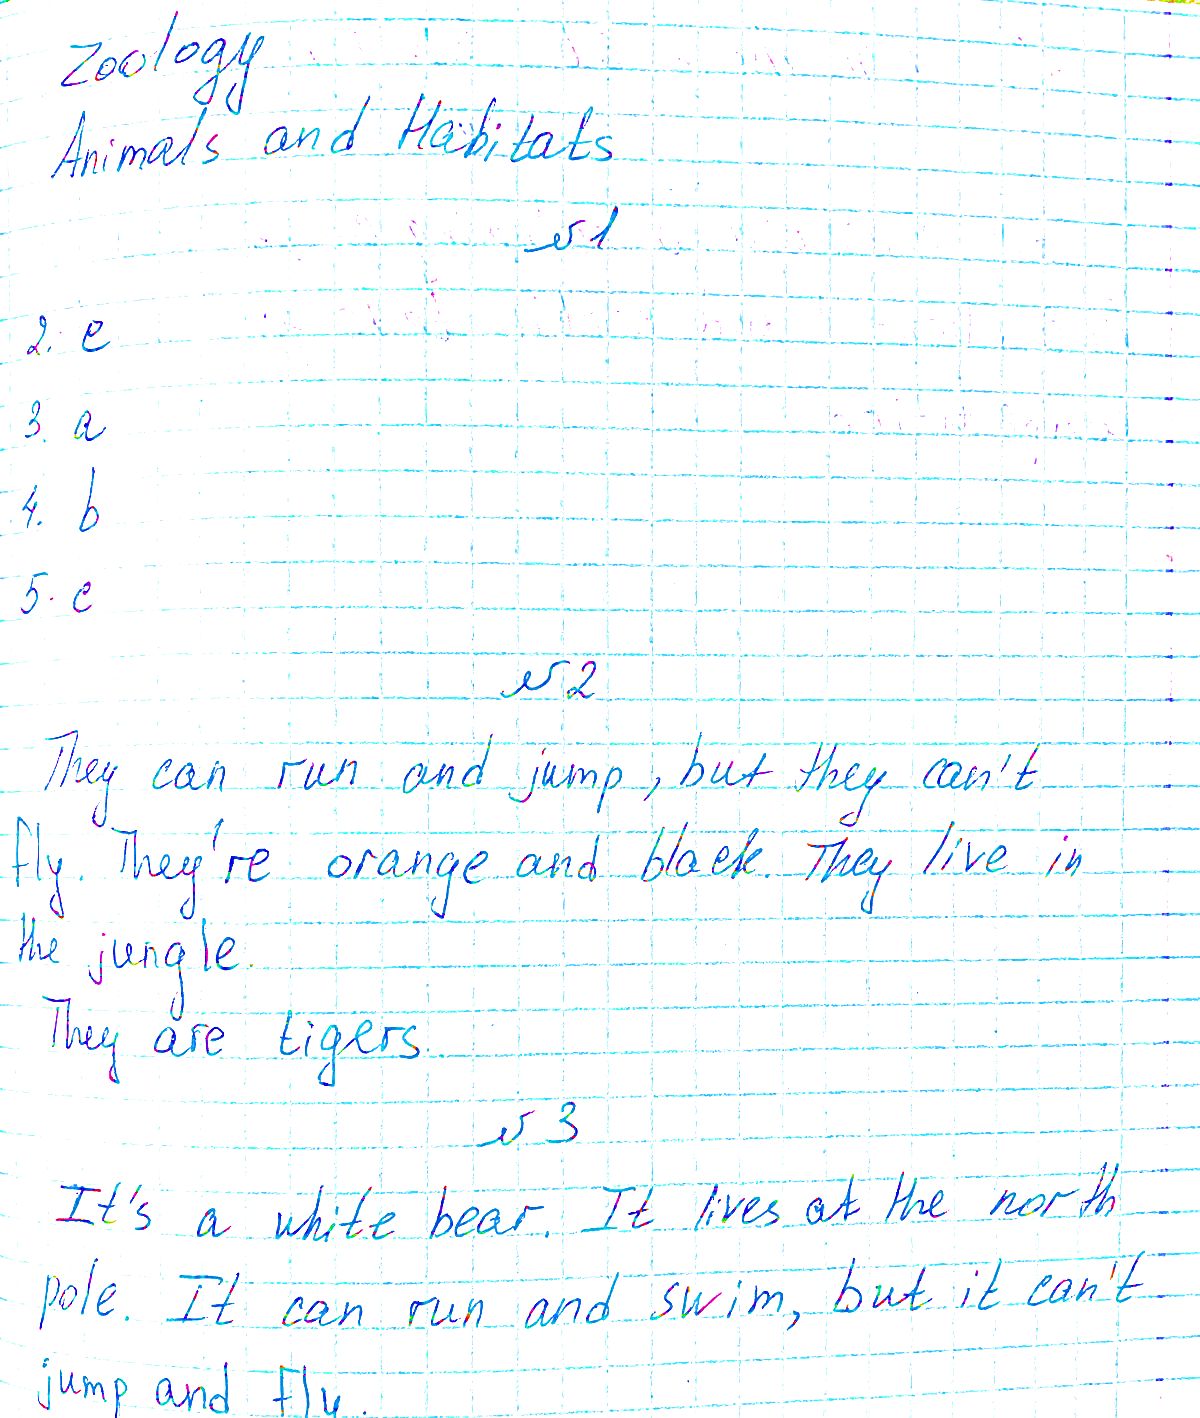 Zoology
Animals and Habitats
№1
2. e
3. a
4. b
5. c
№2
They can run and jump, but they can't
fly. They're orange and black. They live in
the jungle.
They are tigers.
№3
It's a white bear. It lives at the north
pole. It can run and swim, but it can't
jump and fly.